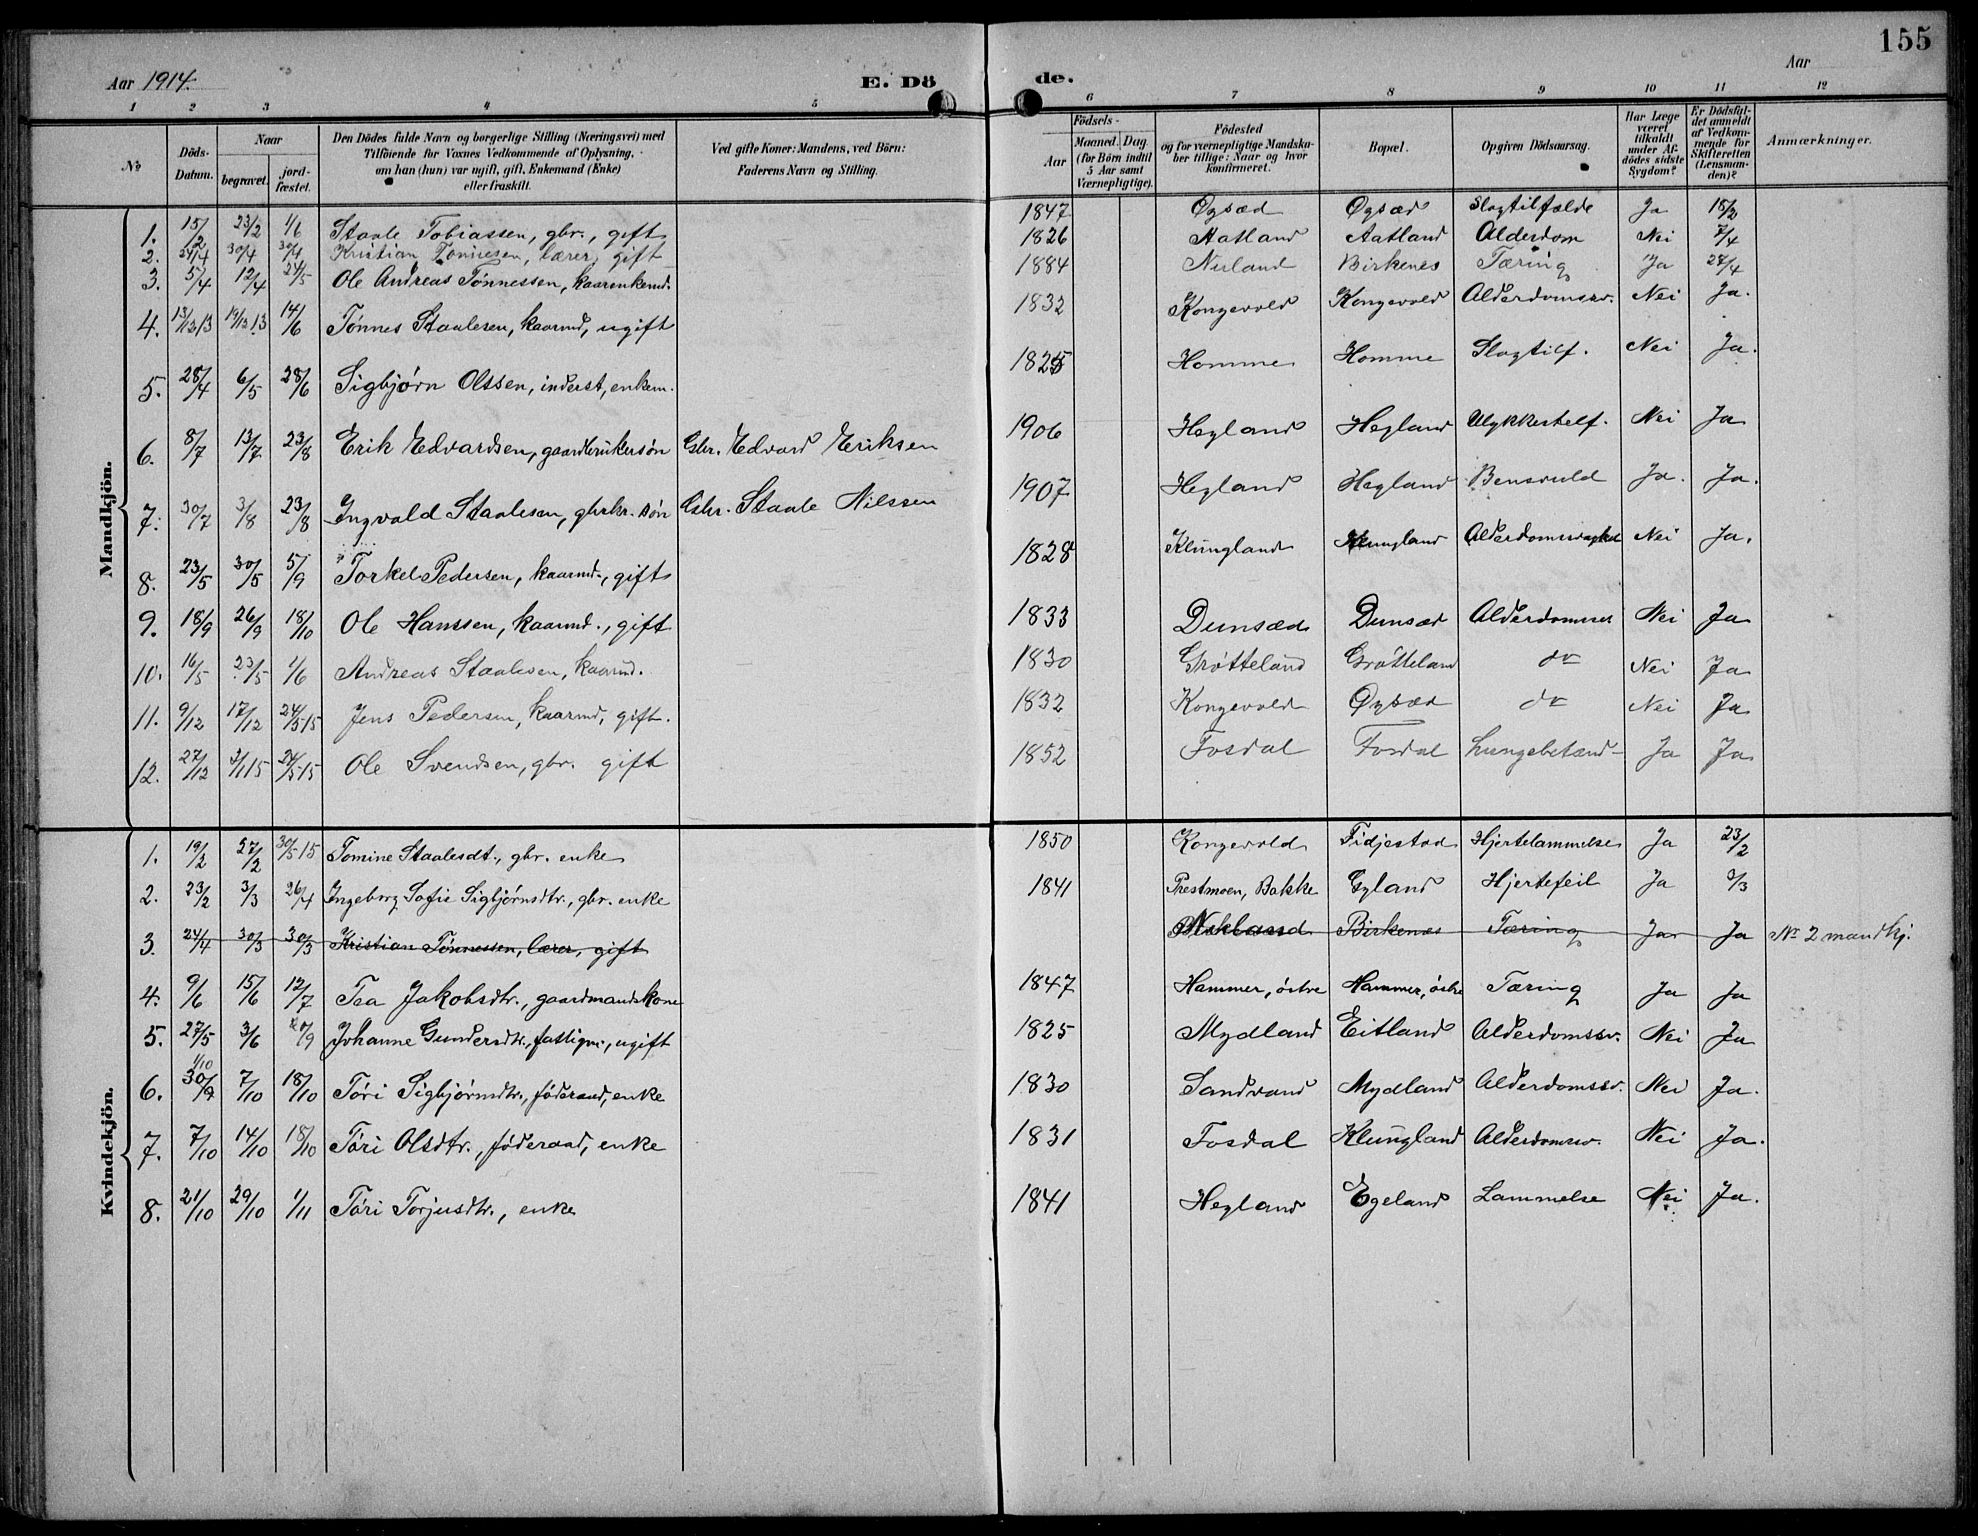 155
Aar 1914. E. Dö de. Aar
1 2 3 4 5 6 7 8 9 10 11 12
No Döds-Datum. Naar begravet. jord-fæstet. Den Dödes fulde Navn og borgerlige Stilling (Næringsvei) med Tilföiende for Voxnes Vedkommende af Oplysning, om han (hun) var ugift, gift, Enkemand (Enke) eller fraskilt. Ved gifte Koner: Mandens, ved Börn: Faderens Navn og Stilling. Födsels- Aar Maaned. Dag. (for Börn indtil 5 Aar samt Værnepligtige). Födested og for værnepligtige Mandska-ber tillige: Naar og hvor konfirmeret. Bopæl. Opgiven Dödsaarsag. Har Læge været tilkaldt under Af-dödes sidste Sygdom? Er Dödsfal-det anmeldt af Vedkom-mende for Skifteretten (Lensman-den)? Anmærkninger.
Mandkjön.
1. 15/2 23/2 1/6 Staale Tobiassen, gbr., gift 1847 Øysæd Øysæd Slagtilfælde Ja 18/2
2. 24/4 30/4 30/4 Kristian Tønnesen, lærer, gift 1826 Aatland Aatland Alderdom Nei 7/4
3. 5/4 12/4 24/5 Ole Andreas Tønnessen, kaarenkemd. 1884 Nuland Birkenes Tæring Ja 28/4
4. 13/12 13 19/12 13 14/6 Tønnes Staalesen, kaarmd, ugift 1832 Kongevold Kongevold Alderdomssv. Nei Ja.
5. 28/4 6/5 28/6 Sigbjørn Olssen, inderst, enkem. 1825 Homme Homme Slagtilf. Nei Ja.
6. 8/7 13/7 23/8 Erik Edvardsen, gaardbrukersøn Gbr. Edvard Eriksen 1906 Hegland Hegland Ulykkestelf. Nei Ja
7. 30/7 3/8 23/8 Ingvald Staalesen, gbrkr. søn Gbr. Staale Nilssen 1907 Hegland Hegland Bensvuld Ja. Ja.
8. 23/5 30/5 5/9 Torkel Pedersen, kaarmd., gift 1828 Klungland Klungland Nei Ja.
9. 18/9 26/9 18/10 Ole Hanssen, kaarmd., gift 1833 Dunsæd Dunsæd Alderdomssv Nei Ja
10. 16/5 23/5 1/6 Andreas Staalesen, kaarmd. 1830 Grøtteland Grøtteland do Nei Ja
11. 9/12 17/12 24/5 15 Jens Pedersen, kaarmd, gift. 1832 Kongevold Øysæd do Nei Ja
12. 27/12 3/1 15 24/5 15 Ole Svendsen, gbr. gift 1852 Fosdal Fosdal Lungebetænd- Ja Ja
Kvindekjön.
1. 19/2 27/2 30/5 15 Tomine Staalesdt., gbr. enke 1850 Kongevold Fidjestad Hjertelammelse Ja 23/2
2. 23/2 3/3 26/4 Ingeborg Sofie Sigbjørnsdtr., gbr. enke 1841 Prestmoen, Bakke Gyland Hjertefeil Ja 3/3
3. 24/4 30/3 30/3 Kristian Tønnessen, lærer, gift Birkenæs Tæring Ja Ja No 2 mandkj.
4. 9/6 15/6 12/7 Tea Jakobsdtr., gaardmandskone 1847 Hammer, østre Hammer, østre Tæring Ja Ja
5. 27/5 3/6 Johanne Gundersdtr., fattigu., ugift 1825 Mydland Eitland Alderdomssv. Nei Ja
6. 1/10 30/9 7/10 18/10 Tøri Sigbjørnsdtr., føderaad, enke 1830 Sandvand Mydland Alderdomssv. Nei Ja.
7. 7/10 14/10 18/10 Tøri Olsdtr., føderaad, enke 1831 Fosdal Klungland Alderdomssv. Nei Ja.
8. 21/10 29/10 1/11 Tøri Torjusdtr., enke 1841 Hegland Egeland Lammelse Nei Ja.